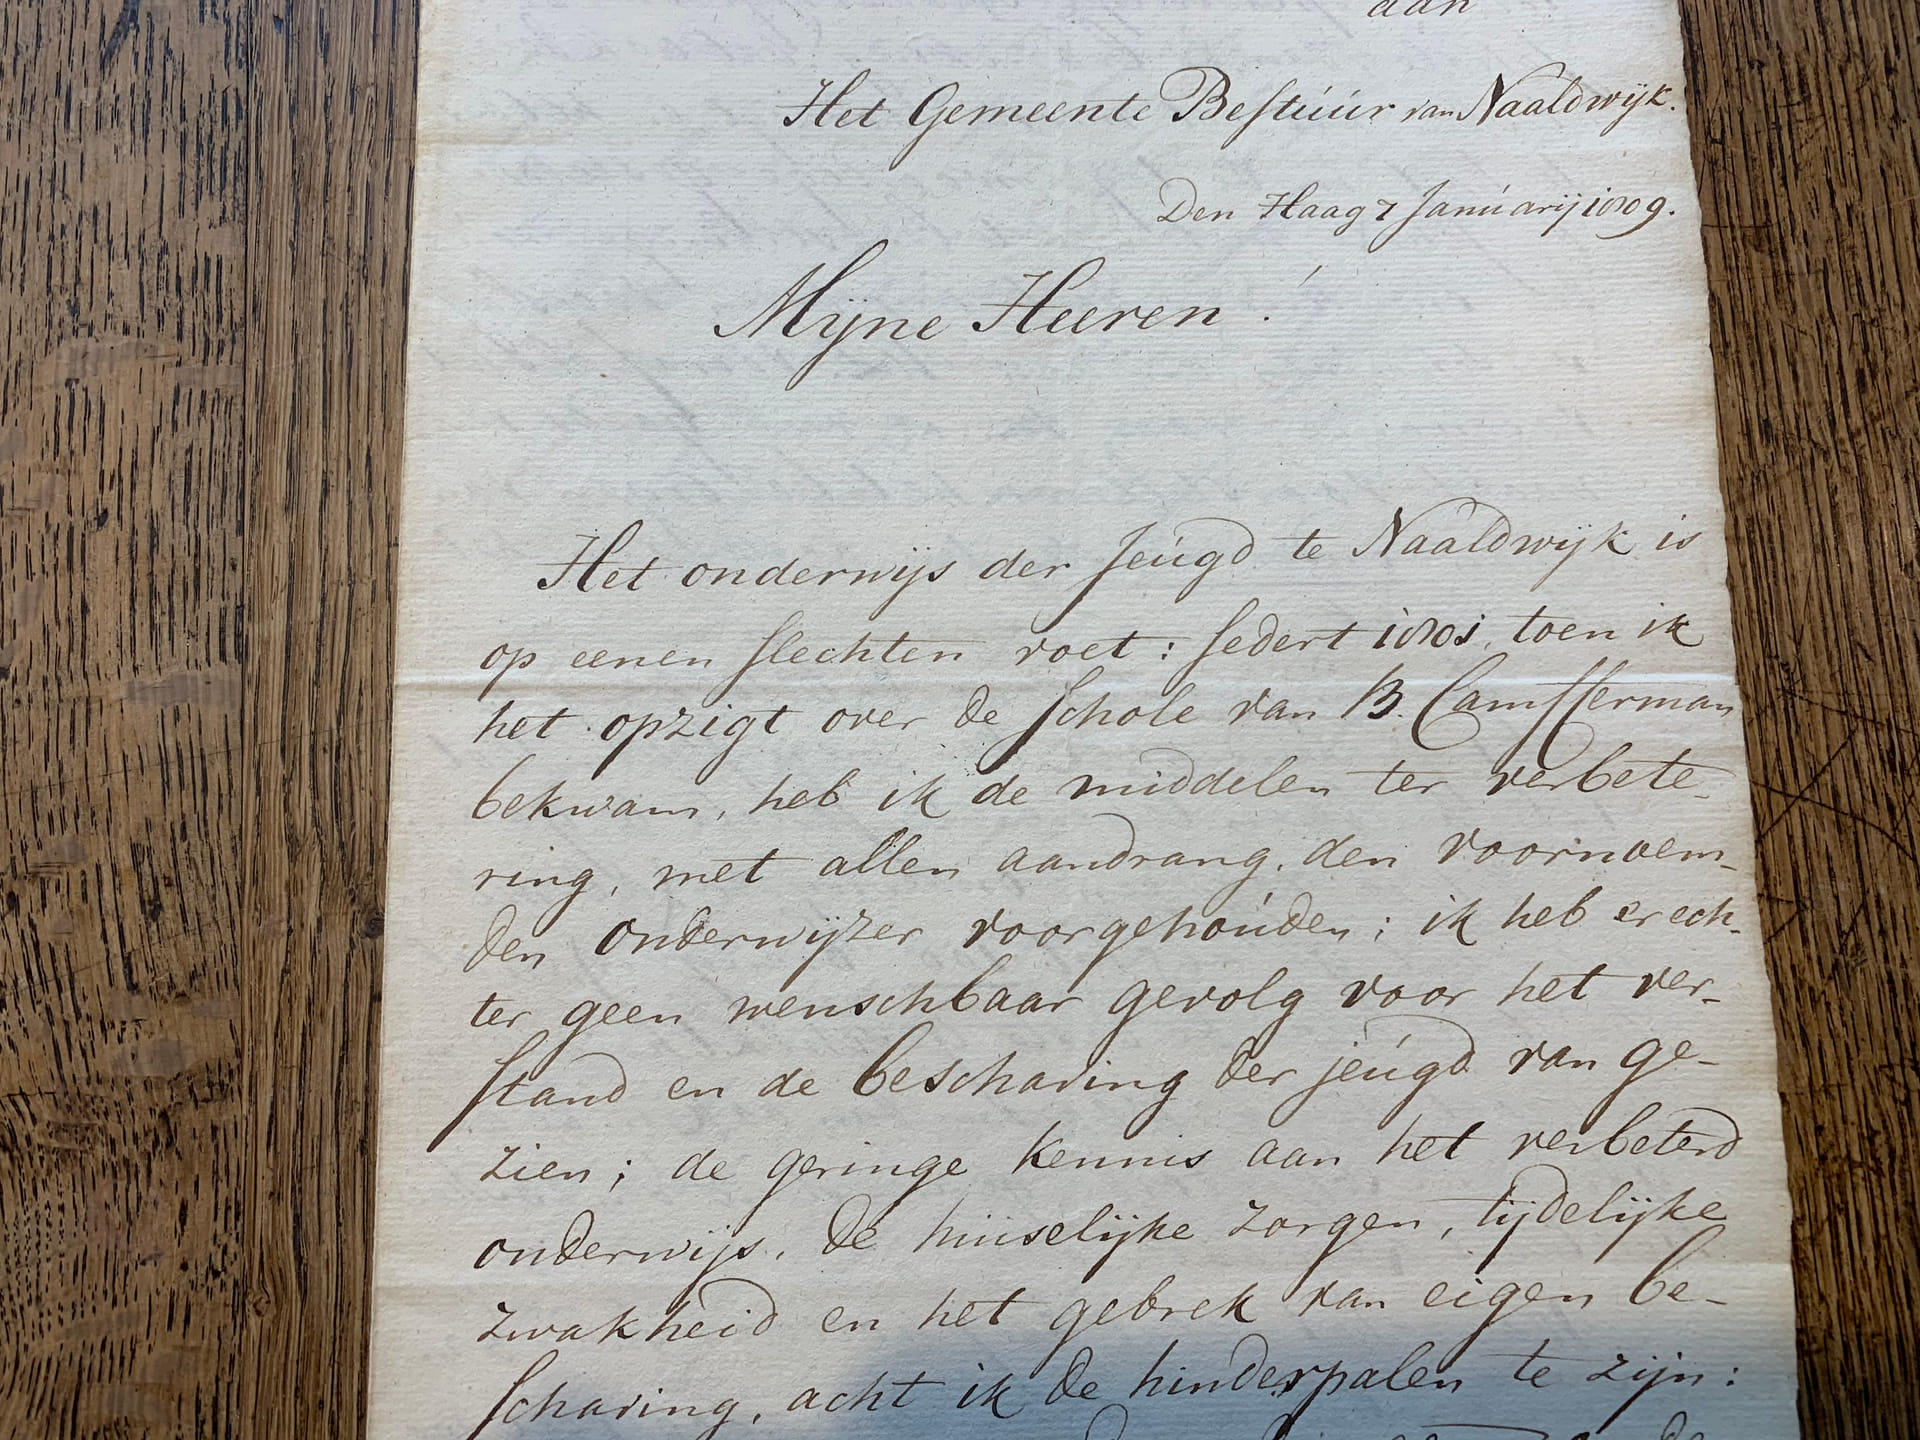 aan
Het Gemeente Bestuur van Naaldwijk.
Den Haag 7 Januarij 1809.
Myne Heeren!
Het onderwijs der Jeugd te Naaldwijk is
op eenen slechten voet: sedert 1801, toen ik
het opzigt over de Schole van B. Camfferman
bekwam, heb ik de middelen ter verbete-
ring, met allen aandrang, den voornoem-
den onderwijzer voorgehouden; ik heb er ech-
ter geen wenschbaar gevolg voor het ver-
stand en de beschaving der jeugd van ge-
zien; de geringe kennis aan het verbeterd
onderwijs, de huiselijke zorgen, tijdelijke
zwakheid en het gebrek van eigen be-
schaving, acht ik de hinderpalen te zijn: